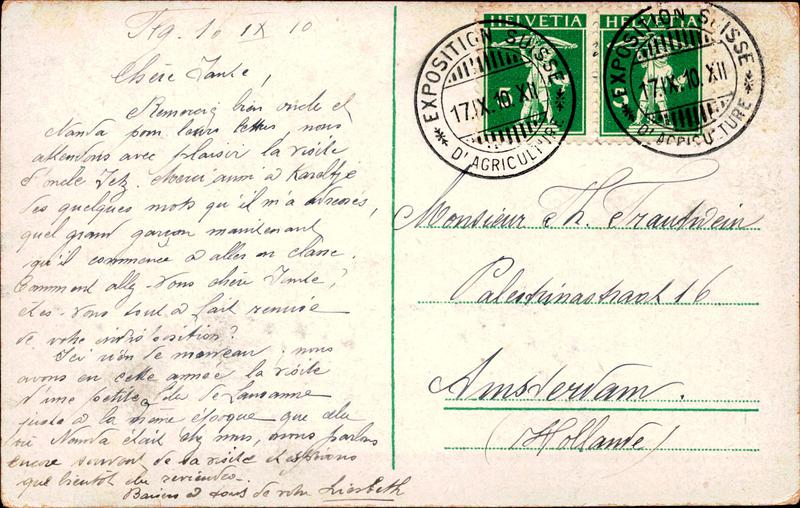 10 IX 10
Chère Tante,
Remerciez bien oncle et
Nanda pour leurs lettres, nous
attendons avec plaisir la visite
d'oncle Merci aussi à Kareltje
des quelques mots qu'il m'a adressés,
quel grand garçon maintenant
qu'il commence à aller en classe.
Comment allez-vous chère Tante?
êtes-vous tout à fait remise
de votre indisposition?
Ici rien de nouveau, nous
avons eu cette année la visite
d'une petite fille de Lausanne
juste à la même époque que celle
où Nanda était chez nous, nous parlons
encore souvent de sa visite et espérons
que bientôt elle reviendra.
Baisers à tous de votre Liesbeth
HELVETIA
HELVETIA
5
EXPOSITION SUISSE
D'AGRICULTURE
17.IX.10.XII
EXPOSITION SUISSE
D'AGRICULTURE
17.IX.10.XII
Monsieur Th. Trautwein
Palestrinastraat 16
Amsterdam.
(Hollande)